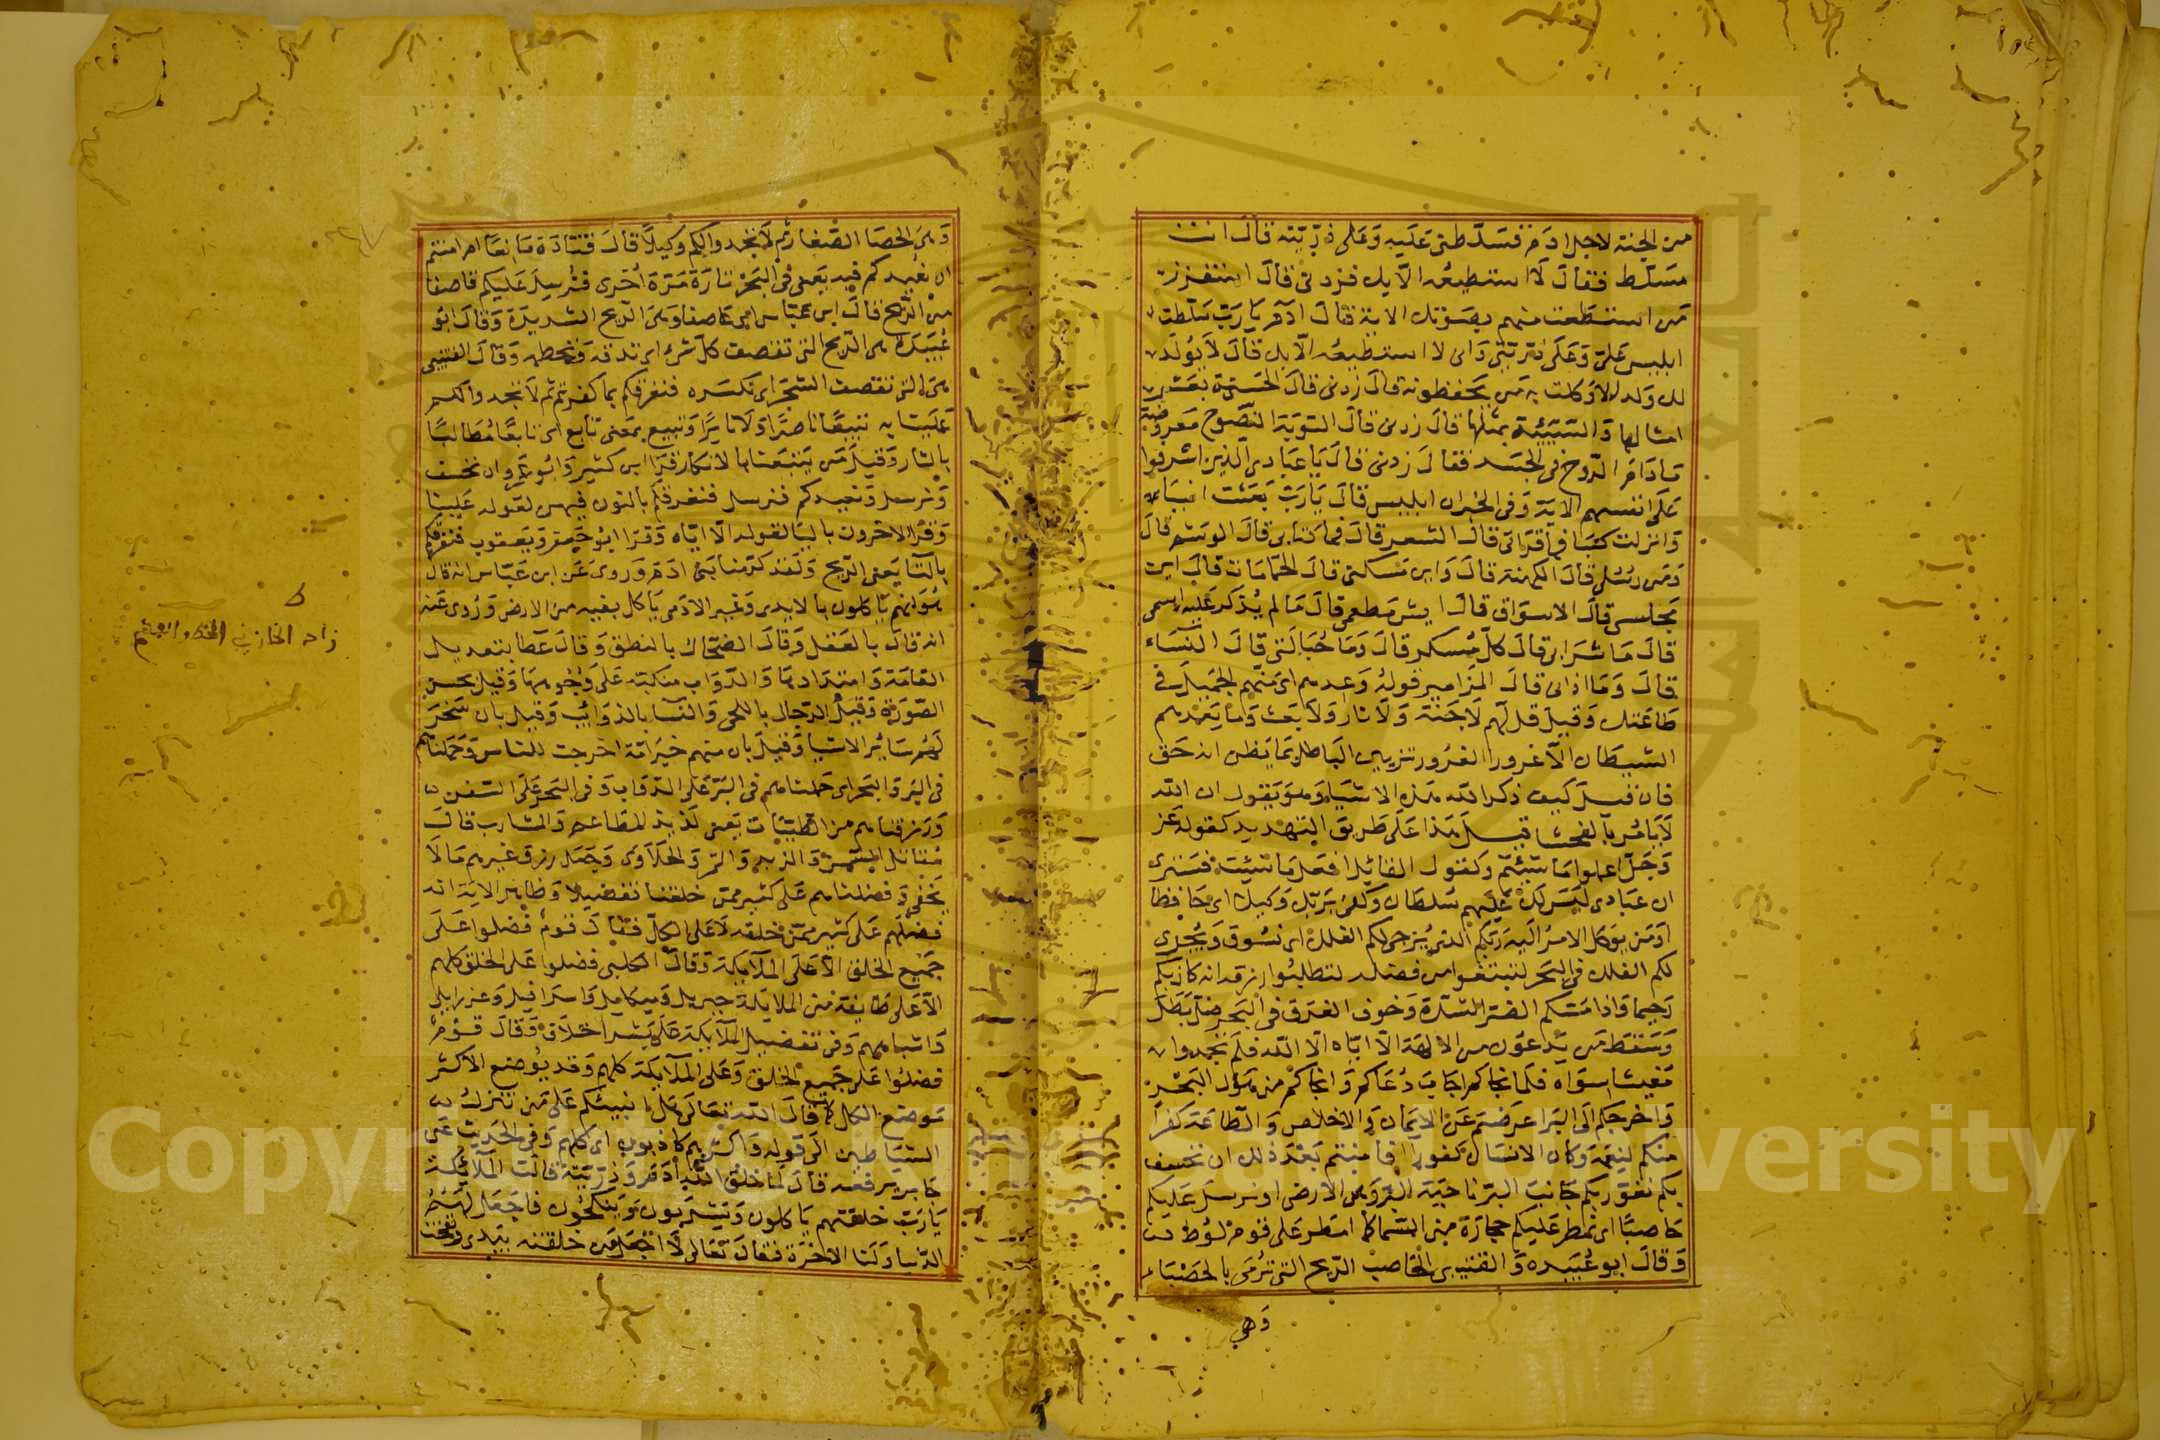 من الجنة لاجل ادم فسلطنى عليه وعلى ذريته قال انت
مسلط فقال لا استطيعه الا بك فزدنى قال استفزز
من استطعت منهم بصوتك الاية فقال آدم يا رب سلطت
ابليس على وعلى ذريتى وانى لا استطيعه الا بك قال لا يولد
لك ولد الا وكلت به من يحفظونه قال زدنى قال الحسنة بعشر
امثالها والسيئة بمثلها قال زدنى قال التوبة النصوح معروضة
مادام الروح فى الجسد فقال زدنى قال يا عبادى الذين اسرفوا
على انفسهم الاية وفى الخبر ان ابليس قال يا رب بعثت انبياء
وانزلت كتبا فما قراتى قال الشعر قال فما كتابى قال الوشم قال
ومن رسلى قال الكهنة قال واين مسكنى قال الحمامات قال اين
مجلسى قال الاسواق قال ايش مطعمى قال ما لم يذكر عليه اسمى
قال ما شرابى قال كل مسكر قال وما حبائلى قال النساء
قال وما اذانى قال المزامير قوله وعدهم اى منهم الجميل فى
طاعتك وقيل قل لهم لا جنة ولا نار ولا بعث وما يعدهم
الشيطان الا غرورا الغرور تزيين الباطل بما يظن انه حق
فان قيل كيف ذكر الله هذه الاشياء وهو يقول ان الله
لا يامر بالفحشا قيل هذا على طريق التهديد كقوله عز
وجل اعملوا ما شئتم وكقول القائل افعل ما شئت فسترى
ان عبادى ليس لك عليهم سلطان وكفى بربك وكيلا اى حافظا
او من يوكل الامر اليه ربكم الذى يزجى لكم الفلك اى يسوق ويجرى
لكم الفلك فى البحر لتبتغوا من فضله لتطلبوا رزقه انه كان بكم
رحيما واذا مسكم الضر الشدة وخوف الغرق فى البحر ضل بطل
وسقط من تدعون من الالهة الا اياه الا الله فلم تجدوا
مغيثا سواه فلما نجاكم اجاب دعاكم وانجاكم من هول البحر
واخرجكم الى البر اعرضتم عن الايمان والاخلاص والطاعة كفرا
منكم لنعمه وكان الانسان كفورا افامنتم بعد ذلك ان نخسف
بكم نغور بكم جانب البر ناحية البر وهى الارض او نرسل عليكم
حاصبا اى نمطر عليكم حجارة من السما كما امطر على قوم لوط
وقال ابو عبيده والقتيبى الحاصب الريح التى ترمى بالحصباء
وهي
وهى الحصا الصغار ثم لا تجدوا لكم وكيلا قال قتادة مانعا ام امنتم
ان نعيدكم فيه يعنى فى البحر تارة مرة اخرى فنرسل عليكم قاصفا
من الريح قال ابن عباس اى عاصفا وهى الريح الشديدة وقال ابو
عبيدة هى الريح التى تقصف كل شى اى تدقه وتحطمه وقال القتيبى
هى التى تقصف الشجر اى تكسره فنغرقكم بما كفرتم ثم لا تجدوا لكم
علينا به تبيعا ناصرا ولا ثايرا وتبيع بمعنى تابع اى تابعا مطالبا
بالثار وقيل من يتبعنا بالانكار قرا ابن كثير وابو عمرو ان نخسف
ونرسل ونعيدكم فنرسل فنغرقكم بالنون فيهن لقوله علينا
وقرا الاخرون باليا لقوله الا اياه وقرا ابو جعفر ويعقوب فتغرقكم
بالتا يعنى الريح ولقد كرمنا بنى ادم وروى عن ابن عباس انه قال
هو انهم ياكلون بالايدى وغير الادمى ياكل بفيه من الارض وروى عنه
انه قال بالعقل وقال الضحاك بالنطق وقال عطا بتعديل
القامة وامتدادها والدواب منكبة على وجوهها وقيل بحسن
الصورة وقيل الرجال باللحى والنسا بالذوائب وقيل بان سخر
لهم سائر الاشيا وقيل بان منهم خير امة اخرجت للناس وحملناهم
فى البر والبحر اى حملناهم فى البر على الدواب وفى البحر على السفن
ورزقناهم من الطيبات يعنى لذيذ المطاعم والمشارب قال
مقاتل السمن والزبد والتمر والحلاوى وجعل رزق غيرهم ما لا
يخفى وفضلناهم على كثير ممن خلقنا تفضيلا وظاهر الاية انه
فضلهم على كثير ممن خلقه لا على الكل فقال قوم فضلوا على
جميع الخلق الا على الملايكة وقال الكلبى فضلوا على الخلق كلهم
الا على طايفة من الملايكة جبريل وميكاييل واسرافيل وعزرايل
واشباههم وفى تفضيل الملايكة على البشر اختلاف وقال قوم
فضلوا على جميع الخلق وعلى الملايكة كلهم وقد يوضع الاكثر
موضع الكل كما قال الله تعالى هل انبيئكم على من تنزل
الشياطين الى قوله واكثرهم كاذبون اى كلهم وفى الحديث عن
جابر يرفعه قال لما خلق الله ادم وذريته قالت الملائكة
يا رب خلقتهم ياكلون ويشربون وينكحون فاجعل لهم
الدنيا ولنا الاخرة فقال تعالى لا اجعل من خلقته بيدى ونفخت
زاد الخازن